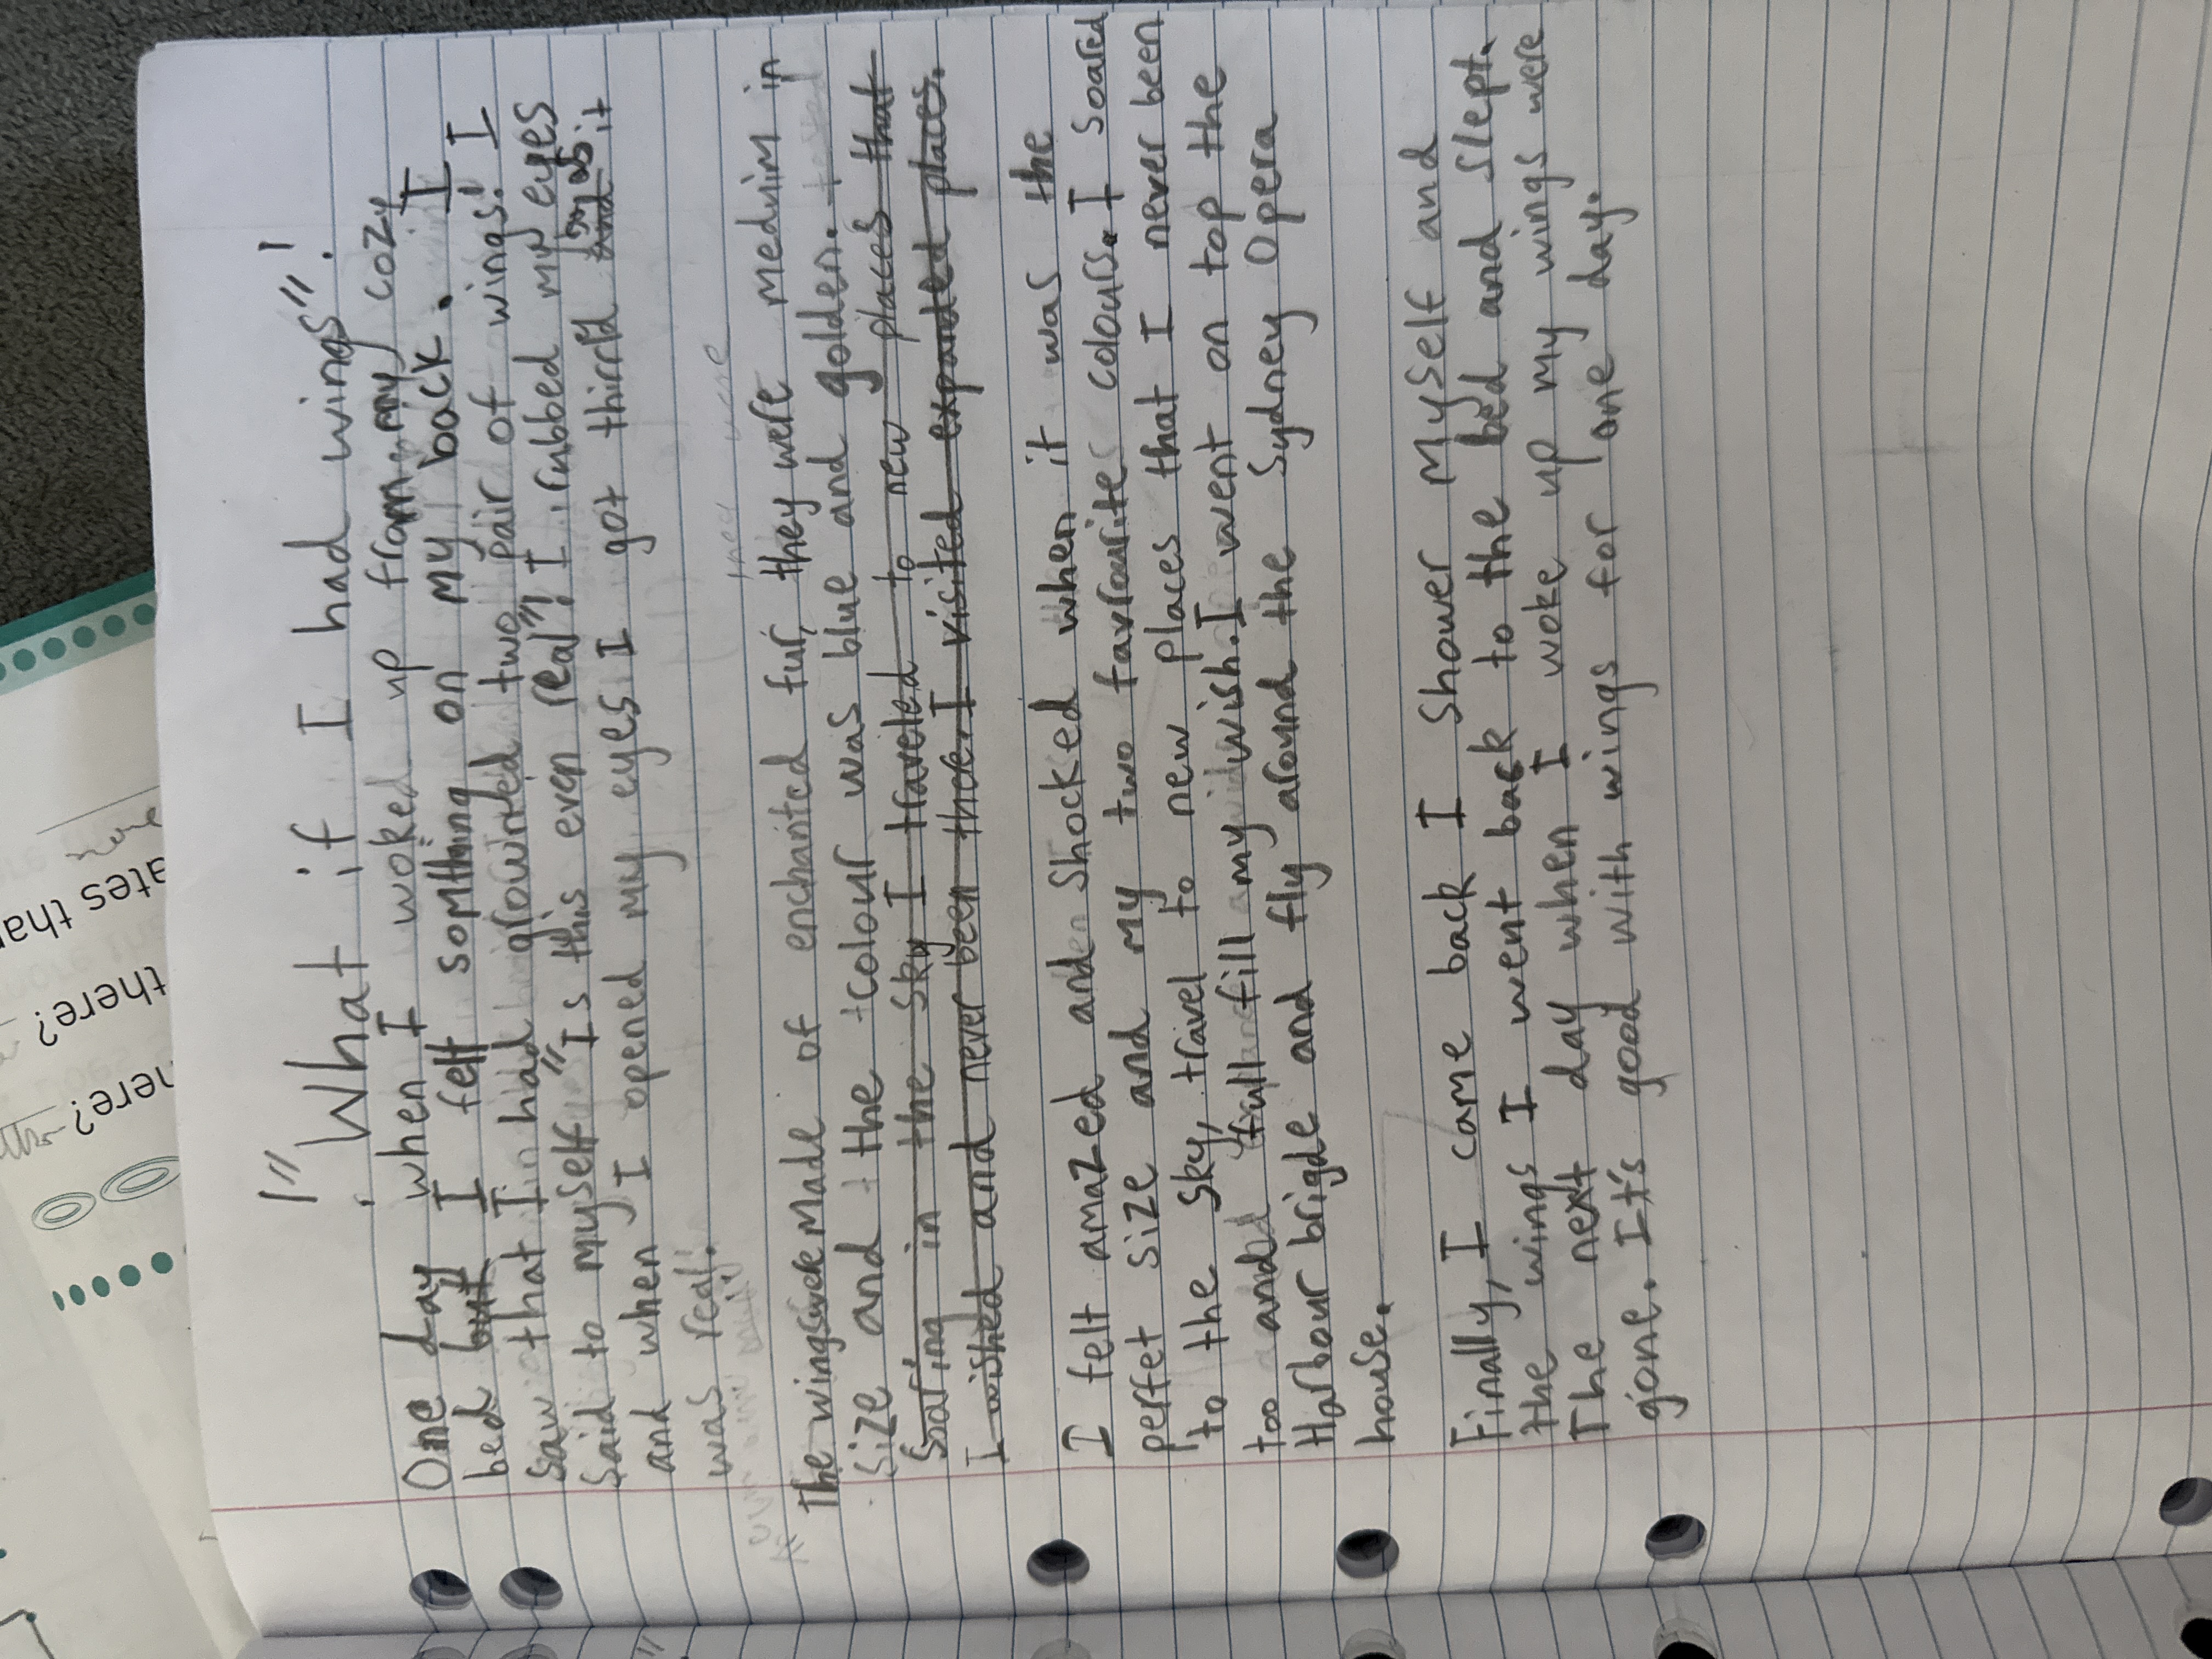 "What if I had wings"!
One day when I woked up from my cozy
bed but I felt somthing on my back. I
saw that I had grownted two pair of wings! I
said to myself "Is this even real"! I rubbed my eyes
and when I opened my eyes I got thirrld and as it
was real.
The wings were Made of enchanted fur, they were medium in
size and the colour was blue and golden.
Soaring in the sky I traveled to new places that
I wished and never been there. I visited expanded places.
I felt amazed and Shocked when it was the
perffet size and my two favrourite colours. I soared
to the sky, travel to new places that I never been
too and full fill my wish. I went on top the
Harbour brigde and fly around the Sydney Opera
house.
Finally, I came back I shower myself and
the wings I went back to the bed and slept.
The next day when I woke up my wings were
gone. It's good with wings for one day.
ates than
there?
here?